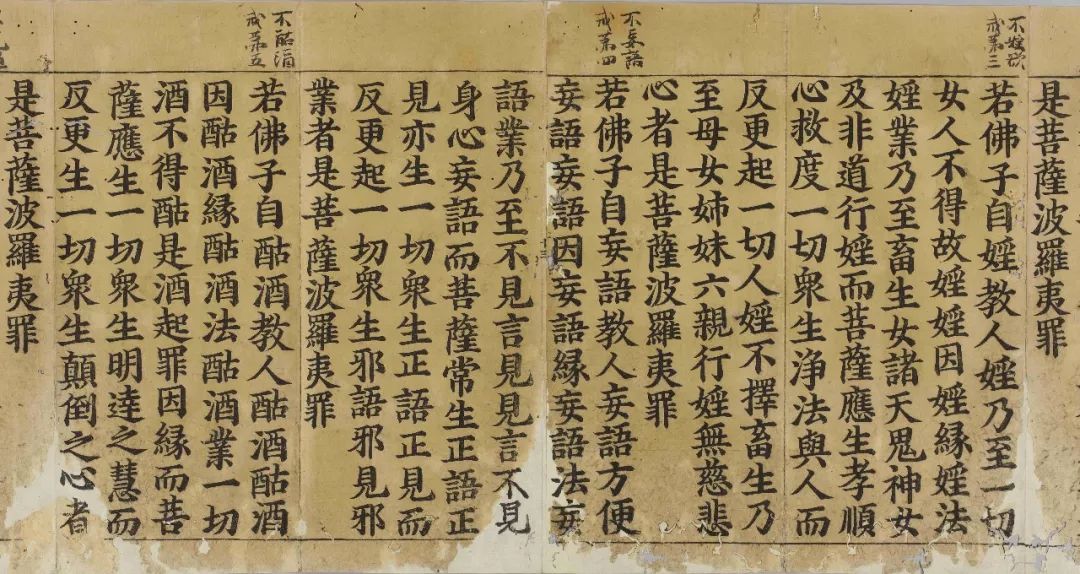 是菩薩波羅夷罪
不婬欲
戒第三
若佛子自婬教人婬乃至一切
女人不得故婬婬因婬緣婬法
婬業乃至畜生女諸天鬼神女
及非道行婬而菩薩應生孝順
心救度一切衆生浄法與人而
反更起一切人婬不擇畜生乃
至母女姉妹六親行婬無慈悲
心者是菩薩波羅夷罪
不妄語
戒第四
若佛子自妄語教人妄語方便
妄語妄語因妄語緣妄語法妄
語業乃至不見言見見言不見
身心妄語而菩薩常生正語正
見亦生一切衆生正語正見而
反更起一切衆生邪語邪見邪
業者是菩薩波羅夷罪
不酤酒
戒第五
若佛子自酤酒教人酤酒酤酒
因酤酒緣酤酒法酤酒業一切
酒不得酤是酒起罪因緣而菩
薩應生一切衆生明逹之慧而
反更生一切衆生顛倒之心者
是菩薩波羅夷罪